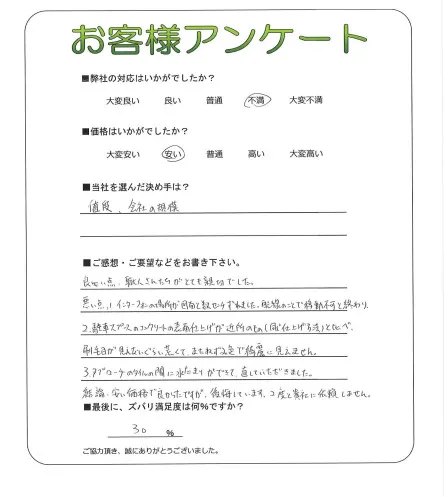 お客様アンケート
■弊社の対応はいかがでしたか?
大変良い 良い 普通 不満 大変不満
■価格はいかがでしたか?
大変安い 安い 普通 高い 大変高い
■当社を選んだ決め手は?
値段、会社の規模
■ご感想・ご要望などをお書き下さい。
良い点、職人さんたちがとても親切でした。
悪い点、1.インターホンの場所が図面と数センチずれました。配線のことで移動不可と終わり
2.駐車スペースのコンクリートの表面仕上げが近所のもの(同じ仕上げ方法)と比べ、
刷毛目が見えないぐらい荒くて、まだら色で綺麗に見えません。
3.アプローチのタイルの間に水たまりができて、直していただきました。
結論、安い価格で良かったですが、後悔しています。2度と貴社に依頼しません。
■最後に、ズバリ満足度は何%ですか?
30 %
ご協力頂き、誠にありがとうございました。